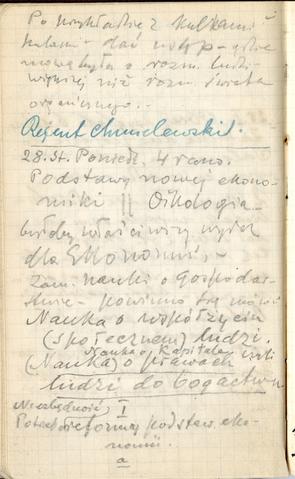 Po wykładzie z kulkami i
kulami – dać ustęp – gdzie
mowa była o rozm. ludz-
więcej niż rozm. świata
organicznego. –
Regent Chmielewski.
28.St. Poniedz. 4 rano.
Podstawy nowej ekono-
miki || Oikologia –
byłby właściwszy wyraz
dla Ekonomii, –
Zam. nauki o Gospodar-
stwie – powinno się mówić
Nauka o współżyciu
(społecznem) ludzi.
Nauka o Kapitale czyli
(Nauka) o prawach
ludzi do bogactw
Niezbędność I
Potrz. reformy podstaw eko-
nomii.
a